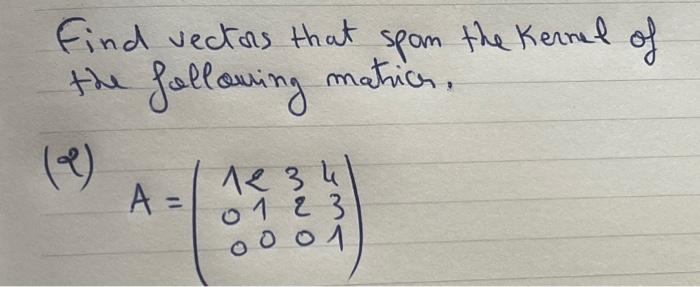 Find vectors that span the Kernel of
the following matrices.
(2)
A = ( 1 2 3 4
0 1 2 3
0 0 0 1 )